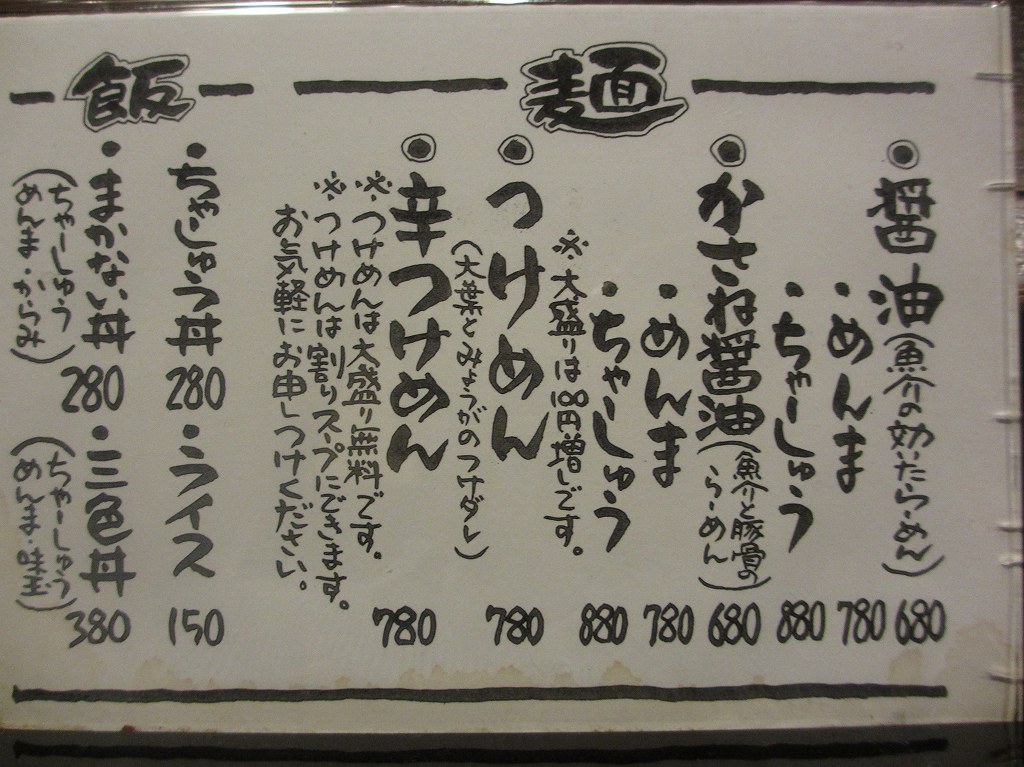 麺
醤油(魚介の効いたらーめん) 680
・めんま 780
・ちゃーしゅう 880
かさね醤油(魚介と豚骨のらーめん) 680
・めんま 780
・ちゃーしゅう 880
※大盛りは100円増しです。
つけめん 780
(大葉とみょうがのつけダレ)
辛つけめん 780
※つけめんは大盛り無料です。
※つけめんは割りスープにできます。
お気軽にお申しつけください。
飯
・ちゃーしゅう丼 280
・ライス 150
・まかない丼 280
(ちゃーしゅう
めんま・からみ)
・三色丼 380
(ちゃーしゅう
めんま・味玉)